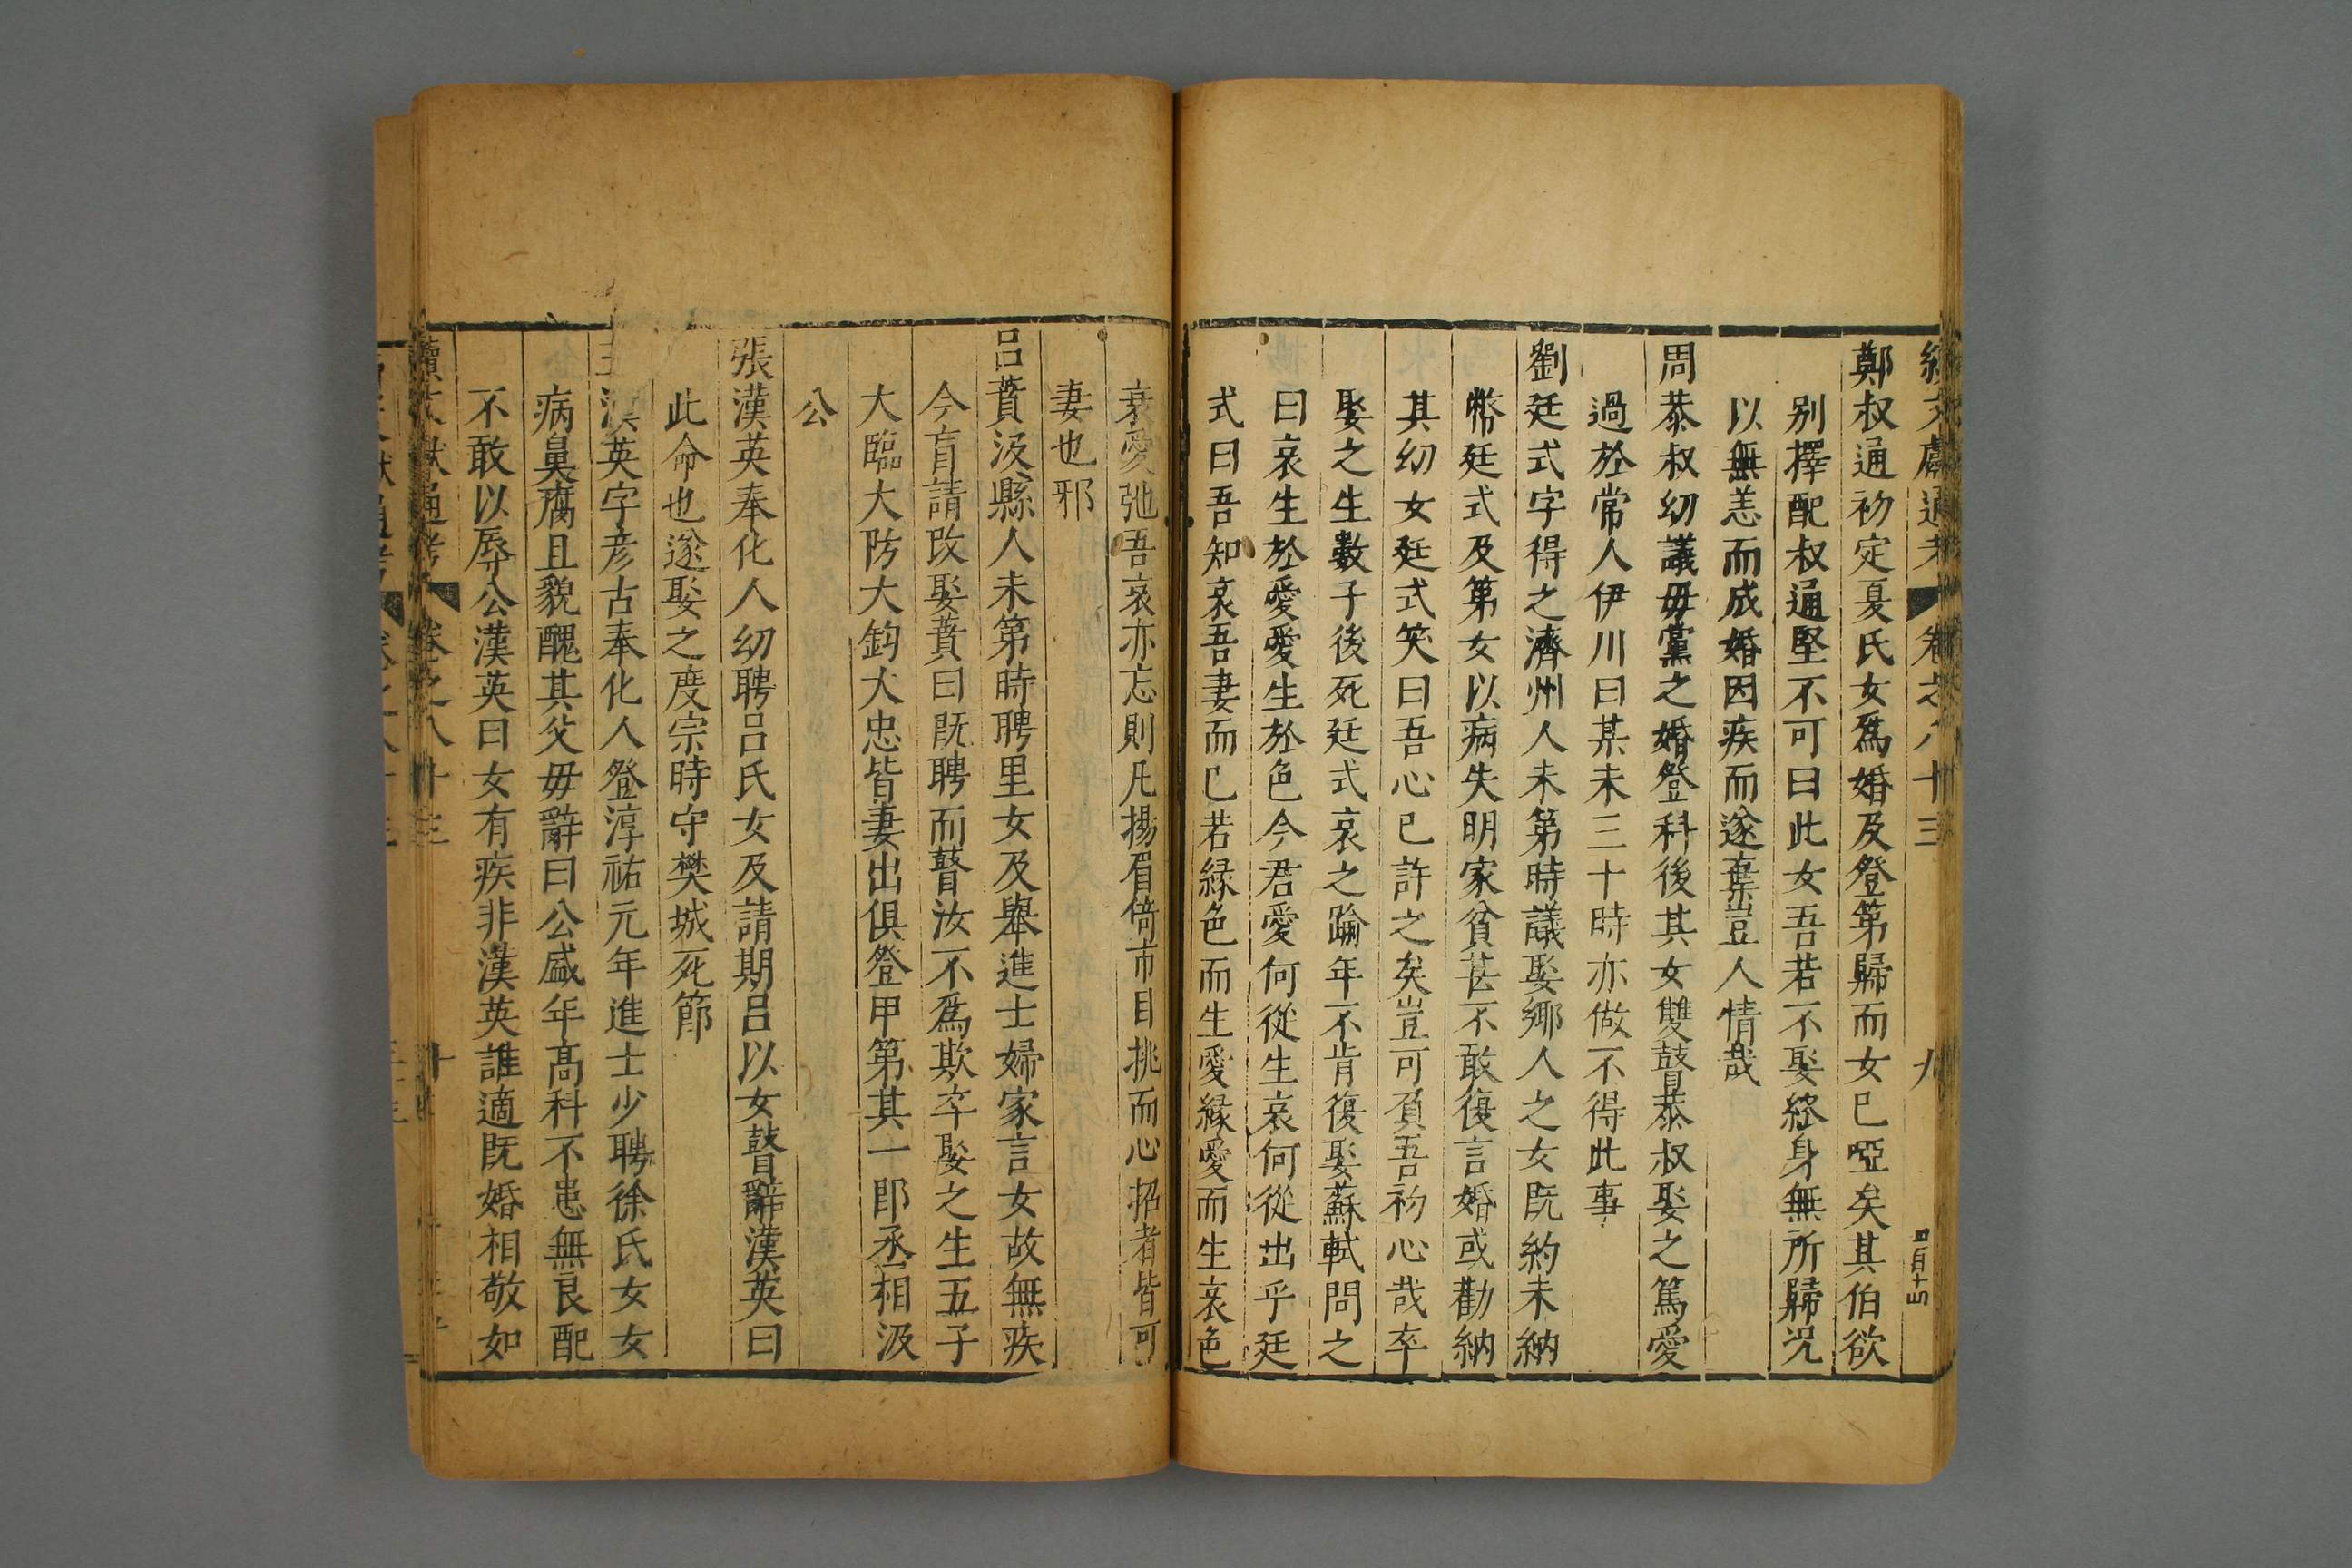 續文獻通考 卷之八十三 九 四百十五
鄭叔通初定夏氏女爲婚及登第歸而女已啞矣其伯欲
别擇配叔通堅不可曰此女吾若不娶終身無所歸况
以無恙而成婚因疾而遂棄豈人情哉
周恭叔幼議毋黨之婚登科後其女雙瞽恭叔娶之篤愛
過於常人伊川曰某未三十時亦做不得此事
劉廷式字得之濟州人未第時議娶鄉人之女既約未納
幣廷式及第女以病失明家貧甚不敢復言婚或勸納
其幼女廷式笑曰吾心已許之矣豈可負吾初心哉卒
娶之生數子後死廷式哀之踰年不肯復娶蘇軾問之
曰哀生於愛愛生於色今君愛何從生哀何從出乎廷
式曰吾知哀吾妻而已若緣色而生愛緣愛而生哀色
衰愛弛吾哀亦忘則凡揚眉倚市目挑而心招者皆可
妻也邪
呂蕡汲縣人未第時聘里女及舉進士婦家言女故無疾
今盲請改娶蕡曰既聘而瞽汝不爲欺卒娶之生五子
大臨大防大鈞大忠皆妻出俱登甲第其一即丞相汲
公
張漢英奉化人幼聘呂氏女及請期呂以女瞽辭漢英曰
此命也遂娶之度宗時守樊城死節
漢英字彦古奉化人登淳祐元年進士少聘徐氏女女
病鼻腐且貌醜其父毋辭曰公盛年高科不患無良配
不敢以辱公漢英曰女有疾非漢英誰適既婚相敬如
續文獻通考 卷之八十三 十